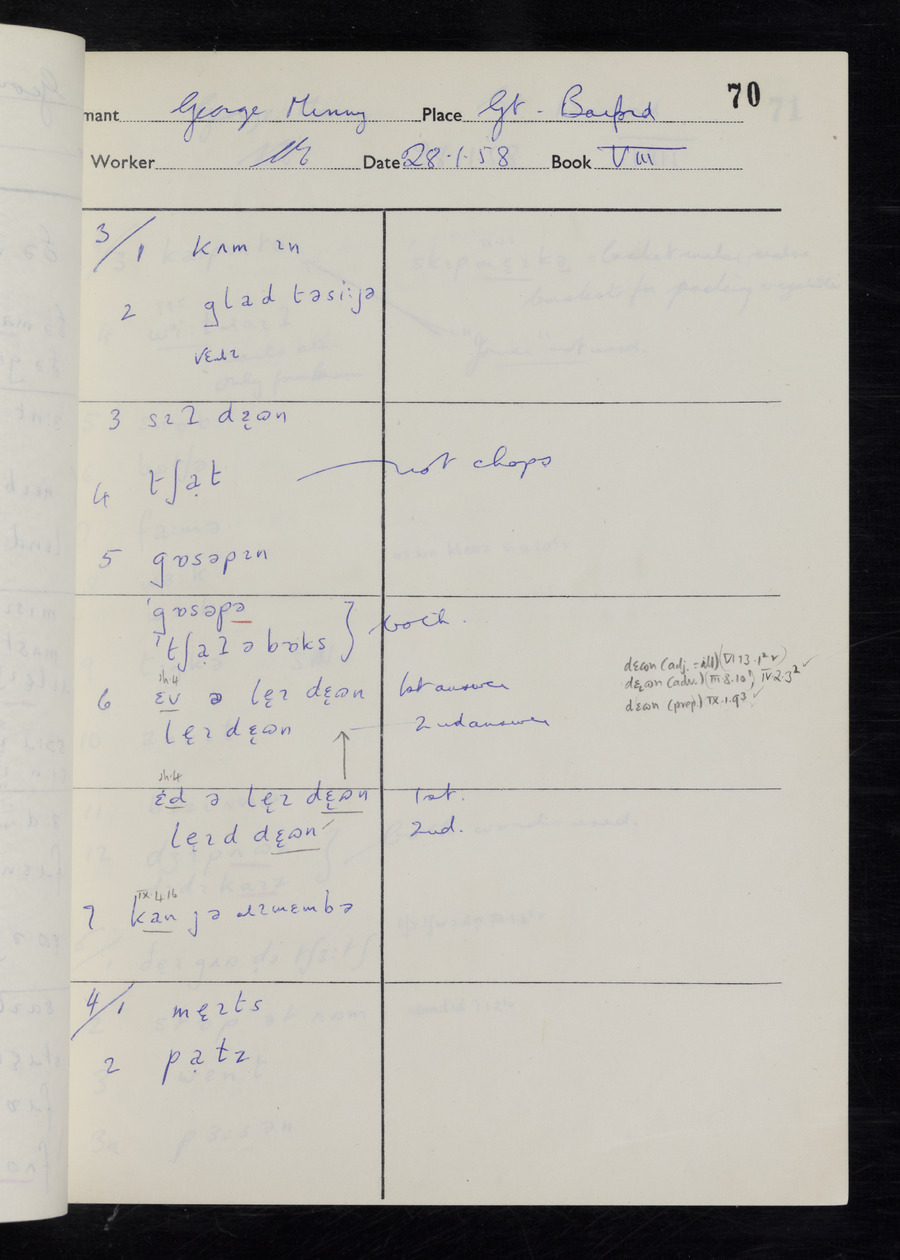 70
mant George Minny Place Gt. Barford
Worker Date 28.1.58 Book VIII
3/1 kʌm ɪn
2 glad təsi:jə
vɛɹɪ
3 sɪʔ dɛ̜ɷn
4 tʃa̝t not chops
5 gɒsəpɪn
ˈgɒsəpə both.
ˈtʃa̝ʔ ə bɒks
sh.4
6 ɛv ə le̜ɪ dɛ̜ɷn 1st answer
le̜ɪ dɛ̜ɷn 2nd answer
dɛɷn (adj. = ill) (VI 13.1² v)
dɛ̜ɷn (adv.) (III.8.10¹) IV.2.3² ✓
dɛɷn (prep.) IX.1.93 ✓
sh.4
ɛd ə le̜ɪ dɛ̜ɷn 1st.
le̜ɪd dɛ̜ɷn 2nd.
IX.4.16
7 kan jə ɹɪmɛmbə
4/1 mɛ̜ɪts
2 pa̝tz